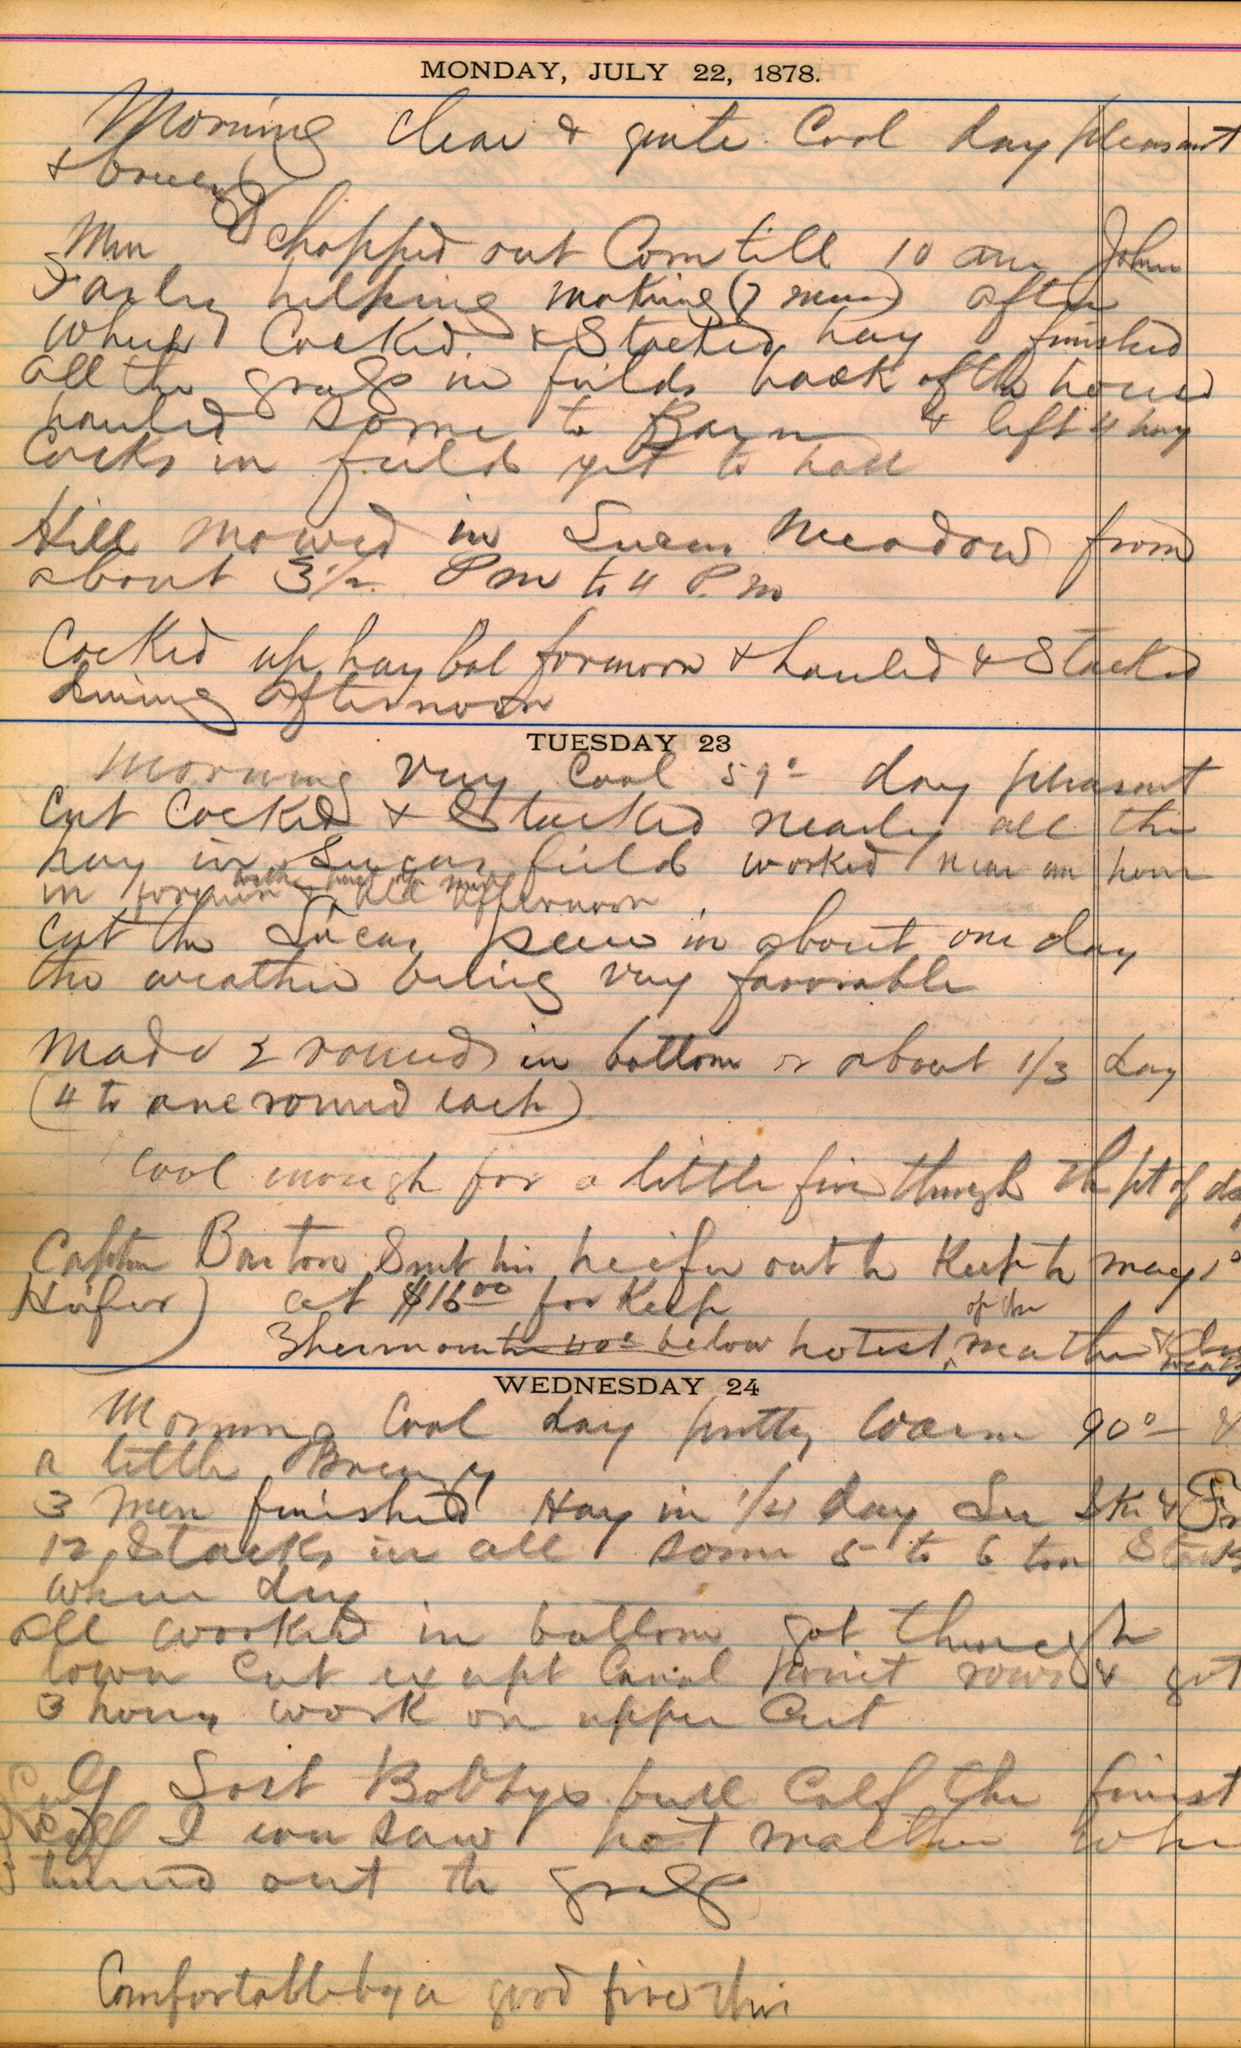 MONDAY, JULY 22, 1878.
Morning clear & quite Cool day pleasant
& breezy
Men chopped out Corn till 10 am John
Farley helping making (7 men) after
which Cocked & Stacked hay finished
all the grass in fields back of the house
hauled some to Barn & left 4 hay
Cocks in field yet to haul
Hill mowed in Lucas Meadow from
about 3½ Pm to 4 P.m
Cocked up hay bal forenoon & hauled & Stacked
during afternoon
TUESDAY 23
Morning very Cool 59° day pleasant
Cut Cocked & Stacked nearly all the
hay in Lucas field worked near an hour
in & all afternoon
Cut the Lucas piece in about one day
the weather being very favorable
Made 2 round in bottom or about 1/3 day
(4 to one round each)
Cool enough for a little fire through the pt of day
Capten Barton Sent his heifer out to Keep to may 1°
Heifer) at $16.00 for Keep
Thermometer 40° below hotest of the weather &
WEDNESDAY 24
Morning Cool day pretty warm 90° &
a little Breezy
3 Men finished Hay in 1/4 day Lu
12 Stacks in all some 5 to 6 ton Stacks
when dry
all worked in bottom got through
lown Cut except Canal point rows & got
3 hours work on upper Cut
Calf Lost Bobbys bull Calf the finest
Calf I ever saw hot weather when
turned out to grass
Comfortable by a good fire this